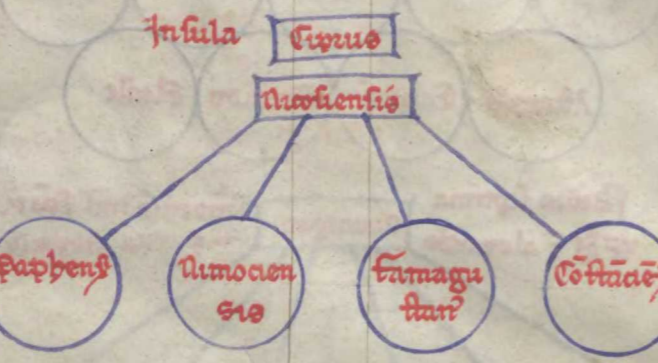 Insula Ciprus
Nicosiensis
Paphensꝭ
Nimocien
sis
Fāmagu
stan̄
Cōstāciē